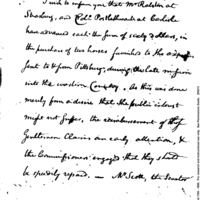 I wish to inform you that Mr Ralston at
Strasburg, and Col. Postlethwaite at Carlisle
have advanced each the sum of sixty dollars, in
the purchase of two horses furnished to the
sent to & from Pittsburg, during the late mission
into the western Country. As this was done
merely from a desire that the public interest
might not suffer, the reimbursement of these
Gentlemens Claims an early attention, &
the Commissioners engaged that they should
be speedily repaid. — Mr Scott, the Senator